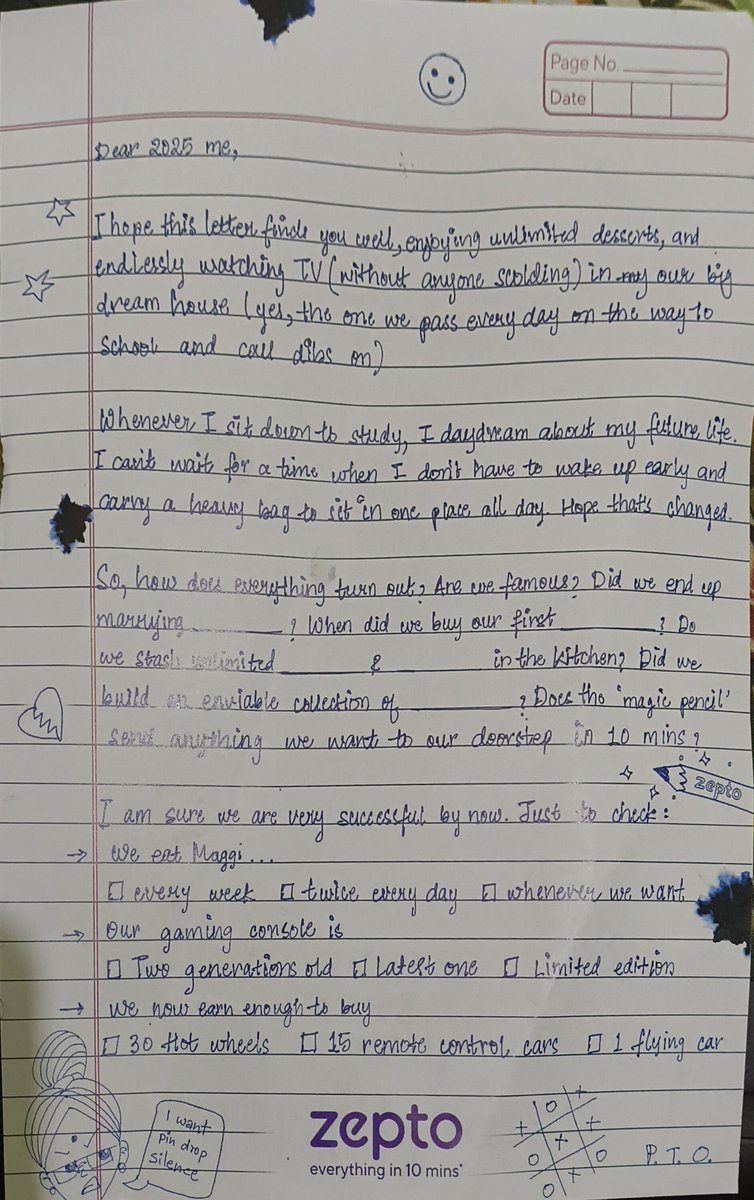 Page No.
Date
Dear 2025 me,
I hope this letter finds you well, enjoying unlimited desserts, and
endlessly watching TV (without anyone scolding) in my our big
dream house (yes, the one we pass every day on the way to
school and call dibs on)
Whenever I sit down to study, I daydream about my future life.
I can't wait for a time when I don't have to wake up early and
carry a heavy bag to sit in one place all day. Hope that's changed.
So, how does everything turn out? Are we famous? Did we end up
marrying ________? When did we buy our first ________? Do
we stash unlimited ________ & ________ in the kitchen? Did we
build an enviable collection of ________? Does the 'magic pencil'
send anything we want to our doorstep in 10 mins?
zepto
I am sure we are very successful by now. Just to check:
→ We eat Maggi...
☐ every week ☐ twice every day ☐ whenever we want
→ Our gaming console is
☐ Two generations old ☐ Latest one ☐ Limited edition
→ We now earn enough to buy
☐ 30 Hot wheels ☐ 15 remote control cars ☐ 1 flying car
I want
pin drop
silence
zepto
everything in 10 mins*
P.T.O.